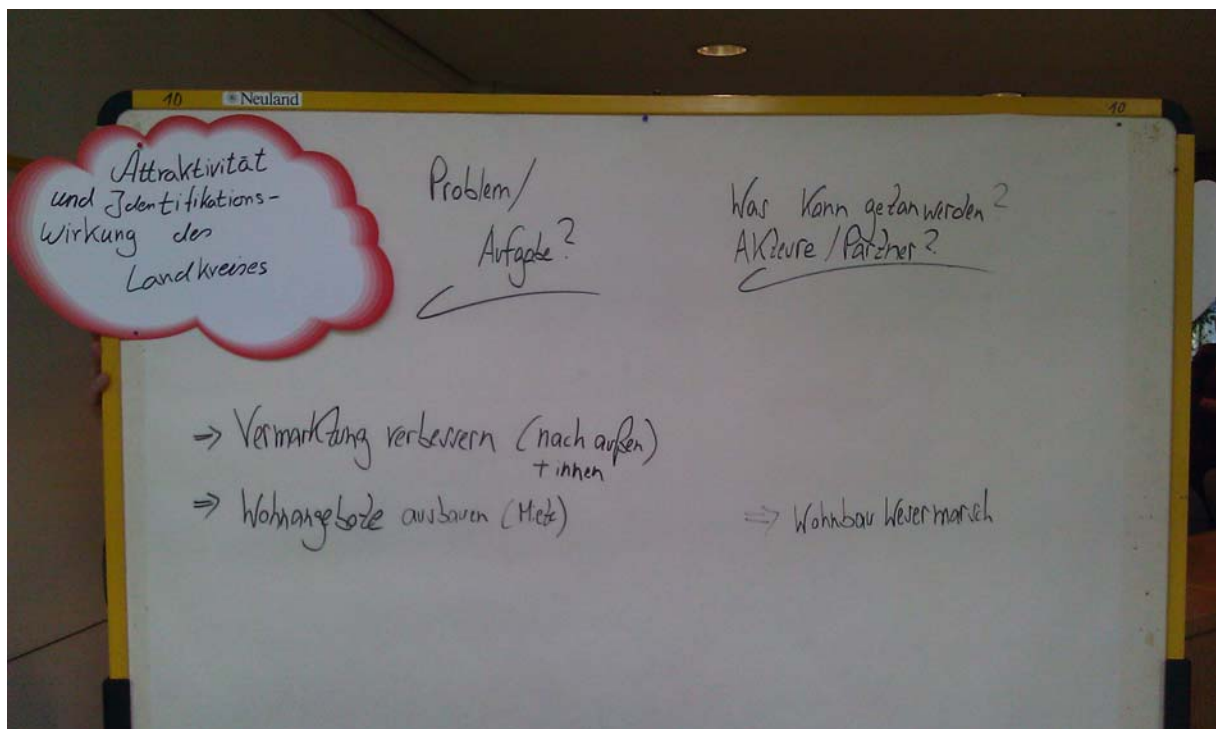 10
Neuland
10
Attraktivität
und Identifikations-
wirkung des
Landkreises
Problem/
Aufgabe?
Was kann getan werden?
Akteure / Partner?
⇒ Vermarktung verbessern (nach außen)
+ innen
⇒ Wohnangebote ausbauen (Miete)
⇒ Wohnbau Wesermarsch